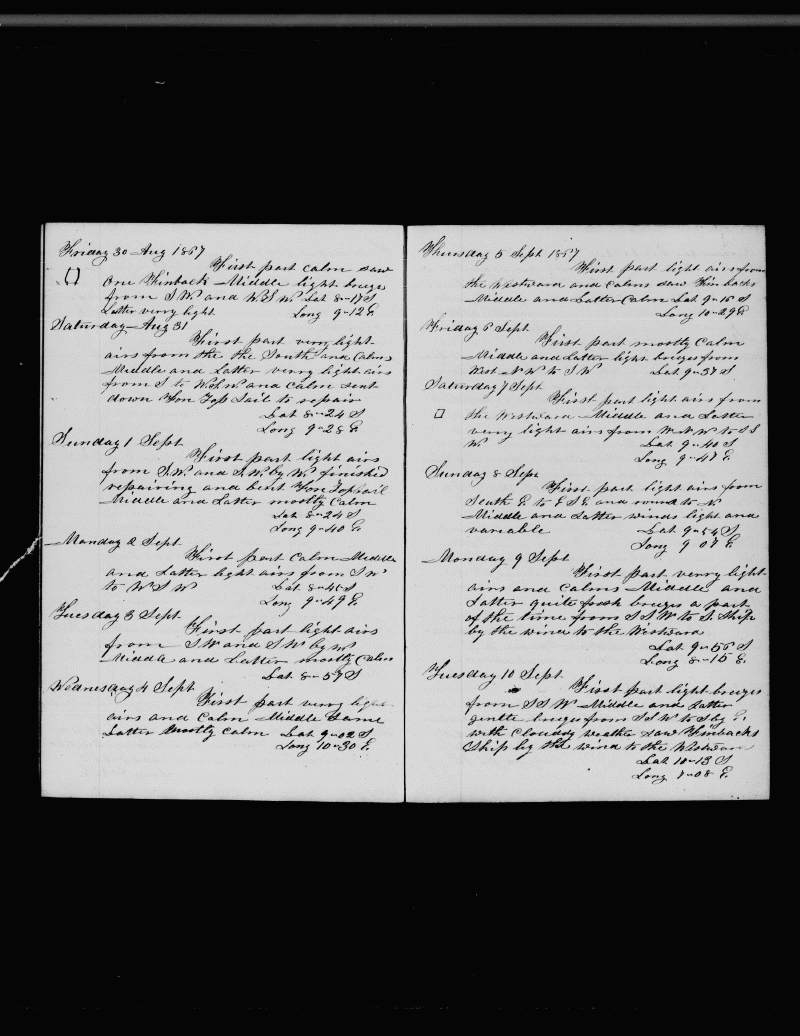 Friday 30 Aug 1867
First part calm saw
One Finback Middle light breezes
from S.W. and W.S.W. Lat 8-17 S
Latter very light Long 9-12 E
Saturday Aug 31
First part verry light
airs from the the South and Calms
Middle and Latter verry light airs
from S to W.S.W and Calm sent
down Fon Top Sail to repair
Lat 8-24 S
Long 9-28 E
Sunday 1 Sept
First part light airs
from S.W. and S.W. by W. finished
repairing and bent Fon Topsail
Middle and Latter mostly Calm
Lat 8-24 S
Long 9-40 E.
Monday 2 Sept
First part Calm Middle
and Latter light airs from S W
to W S W Lat 8-45 S
Long 9-49 E.
Tuesday 3 Sept
First part light airs
from S W and S W by W
Middle and Latter mostly Calm
Lat 8-59 S
Wednesday 4 Sept
First part verry light
airs and Calm Middle Same
Latter Mostly Calm Lat 9-02 S
Long 10-30 E.
Thursday 5 Sept 1867
First part light airs from
the Westward and Calms Saw Finbacks
Middle and Latter Calm Lat 9-15 S
Long 10-29 E
Friday 6 Sept
First part mostly Calm
Middle and Latter light breezes from
West N W to S W Lat 9-37 S
Saturday 7 Sept
First part light airs from
the Westward Middle and Latter
verry light airs from W N W to S S
W. Lat 9-40 S
Long 9-47 E.
Sunday 8 Sept
First part light airs from
South E. to E S E and round to N
Middle and Latter winds light and
variable Lat 9-54 S
Long 9 07 E.
Monday 9 Sept
First part verry light
airs and Calms Middle and
Latter quite fresh breezes a part
of the time from S S W to S. Ship
by the wind to the Westward
Lat 9-56 S
Long 8-15 E.
Tuesday 10 Sept
First part light breezes
from S S W Middle and Latter
gentle breezes from S S W to S by E.
with Clouddy weather saw Finbacks
Ship by the wind to the Westward
Lat 10-13 S
Long 7-08 E.